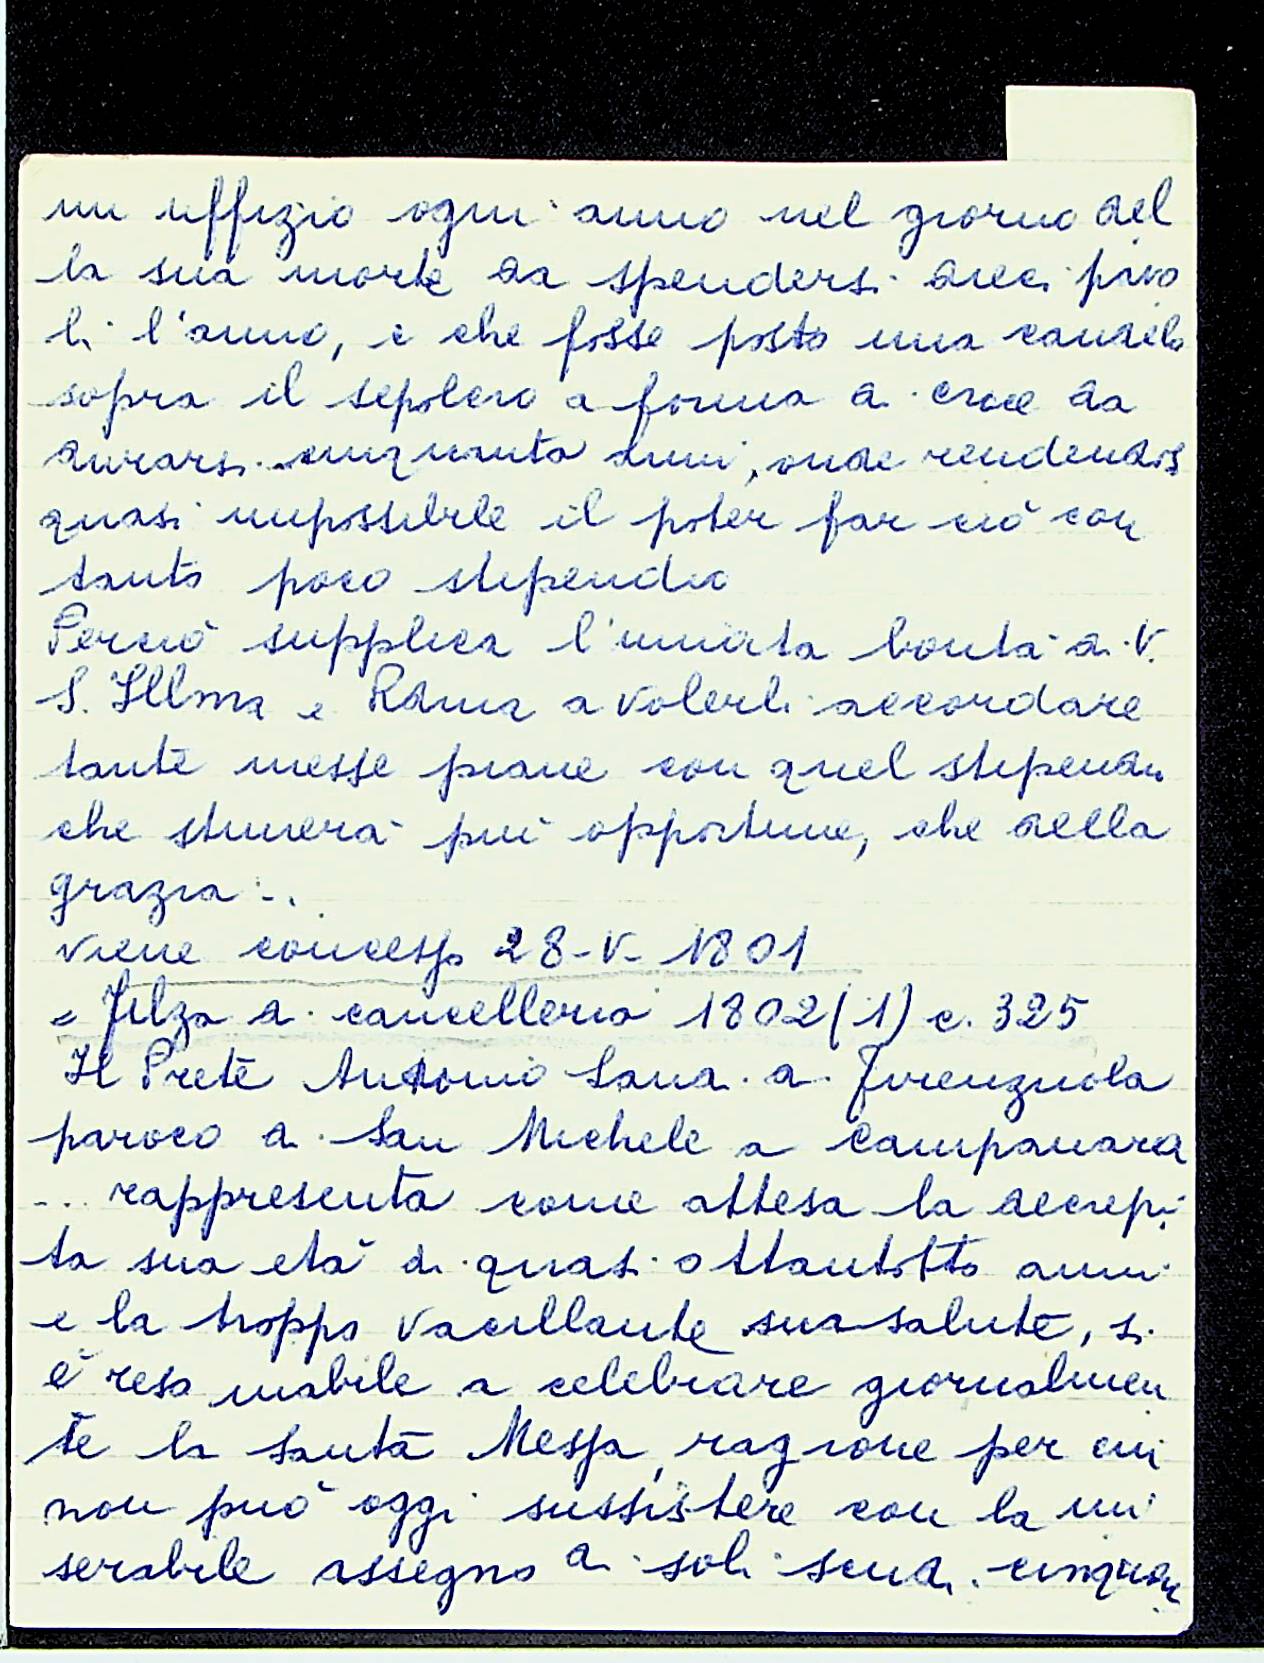 un uffizio ogni anno nel giorno del
la sua morte da spendersi dieci pavo
li l'anno, e che fosse posto una candela
sopra il sepolcro a forma di croce da
durarsi cinquanta anni, onde rendendosi
quasi impossibile il poter far ciò con
tanto poco stipendio
Perciò supplica l'innata bontà di V.
S. Illma e Rdma a volerli accordare
tante messe piane con quel stipendio
che stimerà più opportune, che della
grazia...
viene concesso 28-V-1801
= Filza di cancelleria 1802(1) c. 325
Il Prete Antonio Sana di Firenzuola
paroco di San Michele a Campanara
... rappresenta come attesa la decrepi
ta sua età di quasi ottantotto anni
e la troppo vacillante sua salute, si
è reso inabile a celebrare giornalmen
te la Santa Messa, ragione per cui
non può oggi sussistere con la mi
serabile assegno di soli scudi cinquan